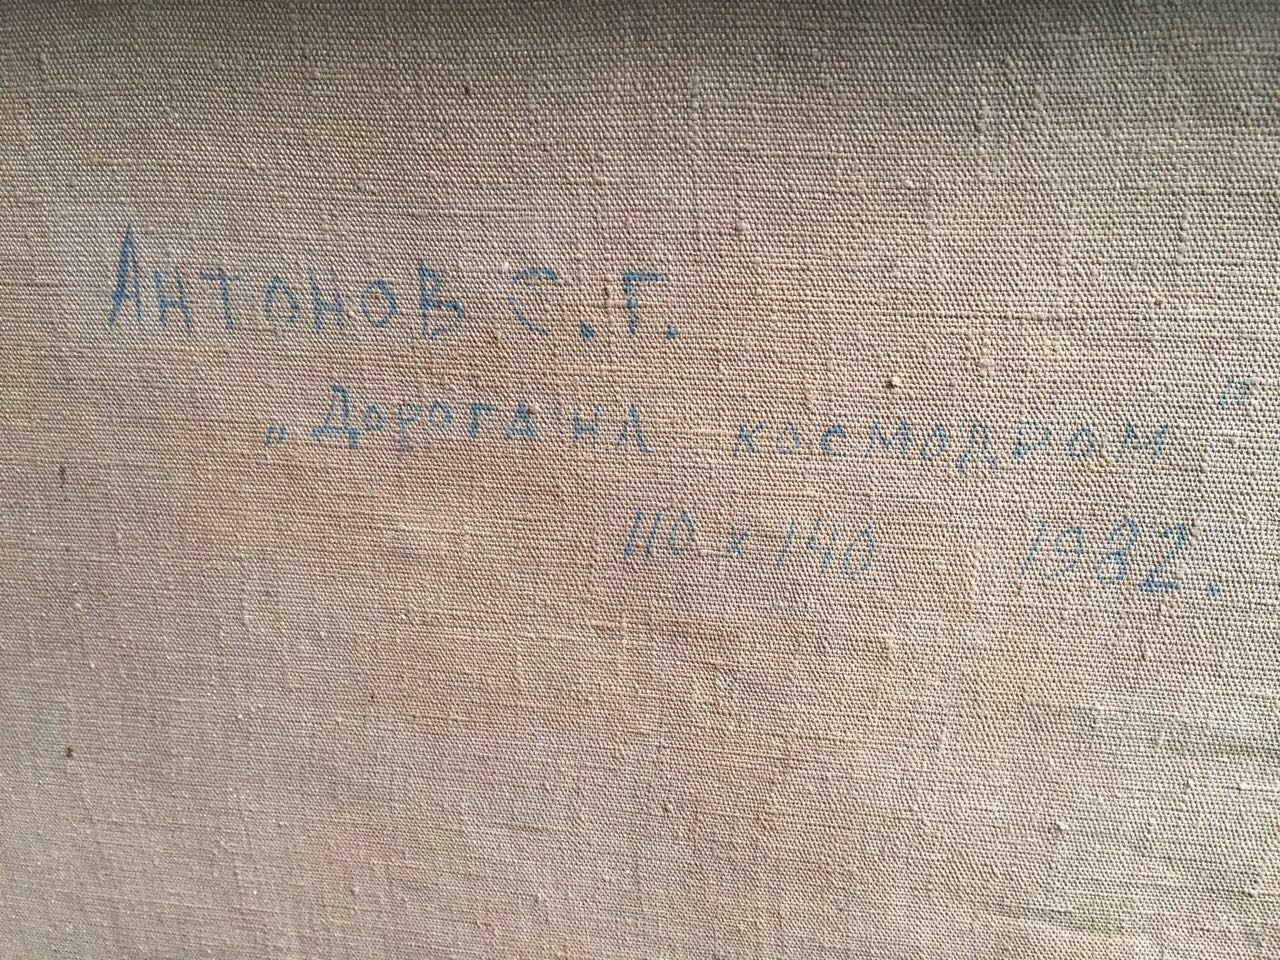 Антонов С.Г.
„Дорога на космодром"
110 х 140 1982.